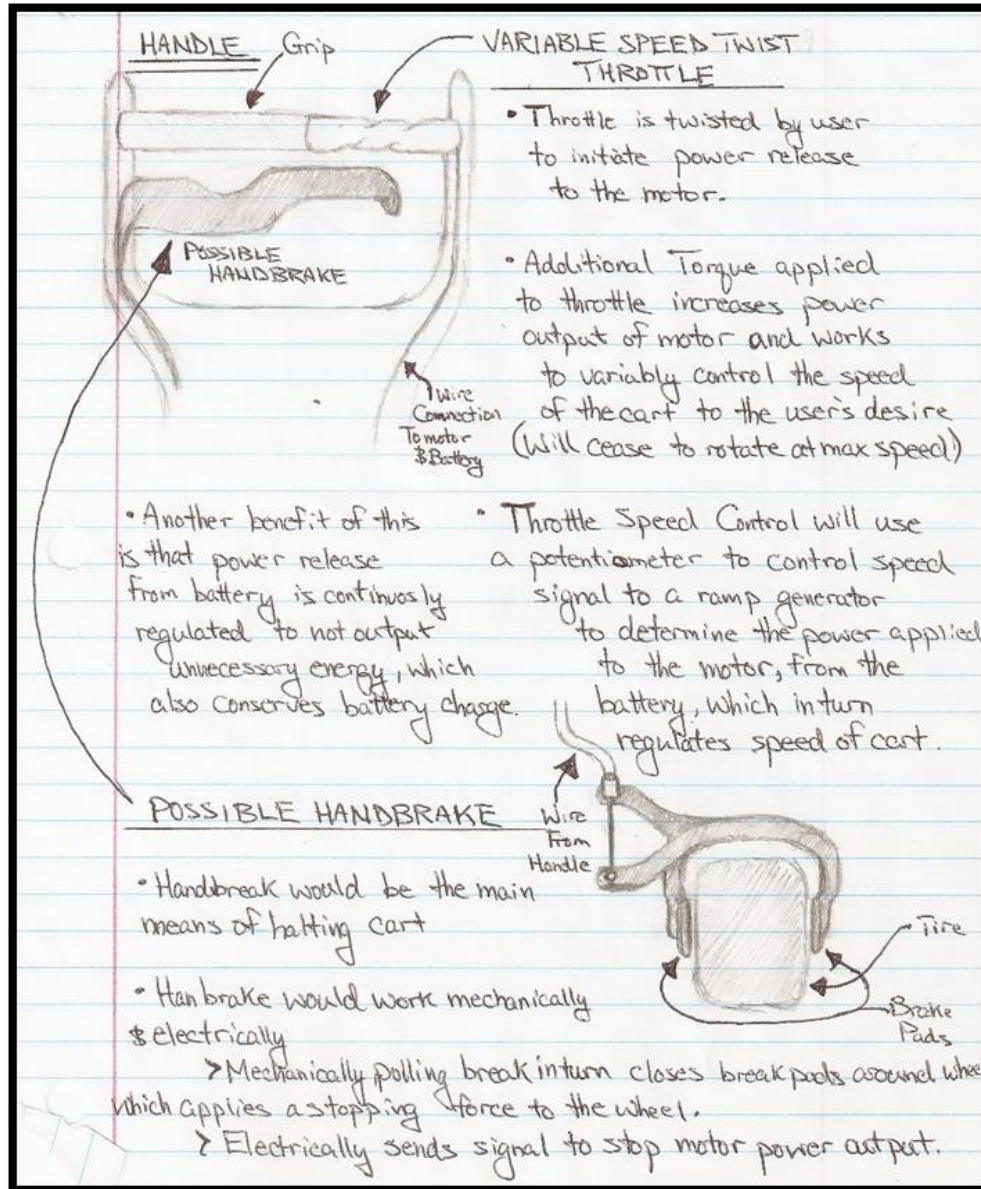 HANDLE
Grip
VARIABLE SPEED TWIST
THROTTLE
• Throttle is twisted by user
to initiate power release
to the motor.
POSSIBLE
HANDBRAKE
• Additional Torque applied
to throttle increases power
output of motor and works
to variably control the speed
of the cart to the user's desire
(Will cease to rotate at max speed)
Wire
Connection
To motor
& Battery
• Another benefit of this
is that power release
from battery is continuosly
regulated to not output
unnecessary energy, which
also conserves battery charge.
• Throttle Speed Control will use
a potentiometer to control speed
signal to a ramp generator
to determine the power applied
to the motor, from the
battery, which in turn
regulates speed of cart.
POSSIBLE HANDBRAKE
Wire
From
Handle
• Handbreak would be the main
means of halting cart
Tire
Brake
Pads
• Hanbrake would work mechanically
& electrically
> Mechanically, polling break in turn closes break pads around whee
which applies a stopping force to the wheel.
> Electrically sends signal to stop motor power output.